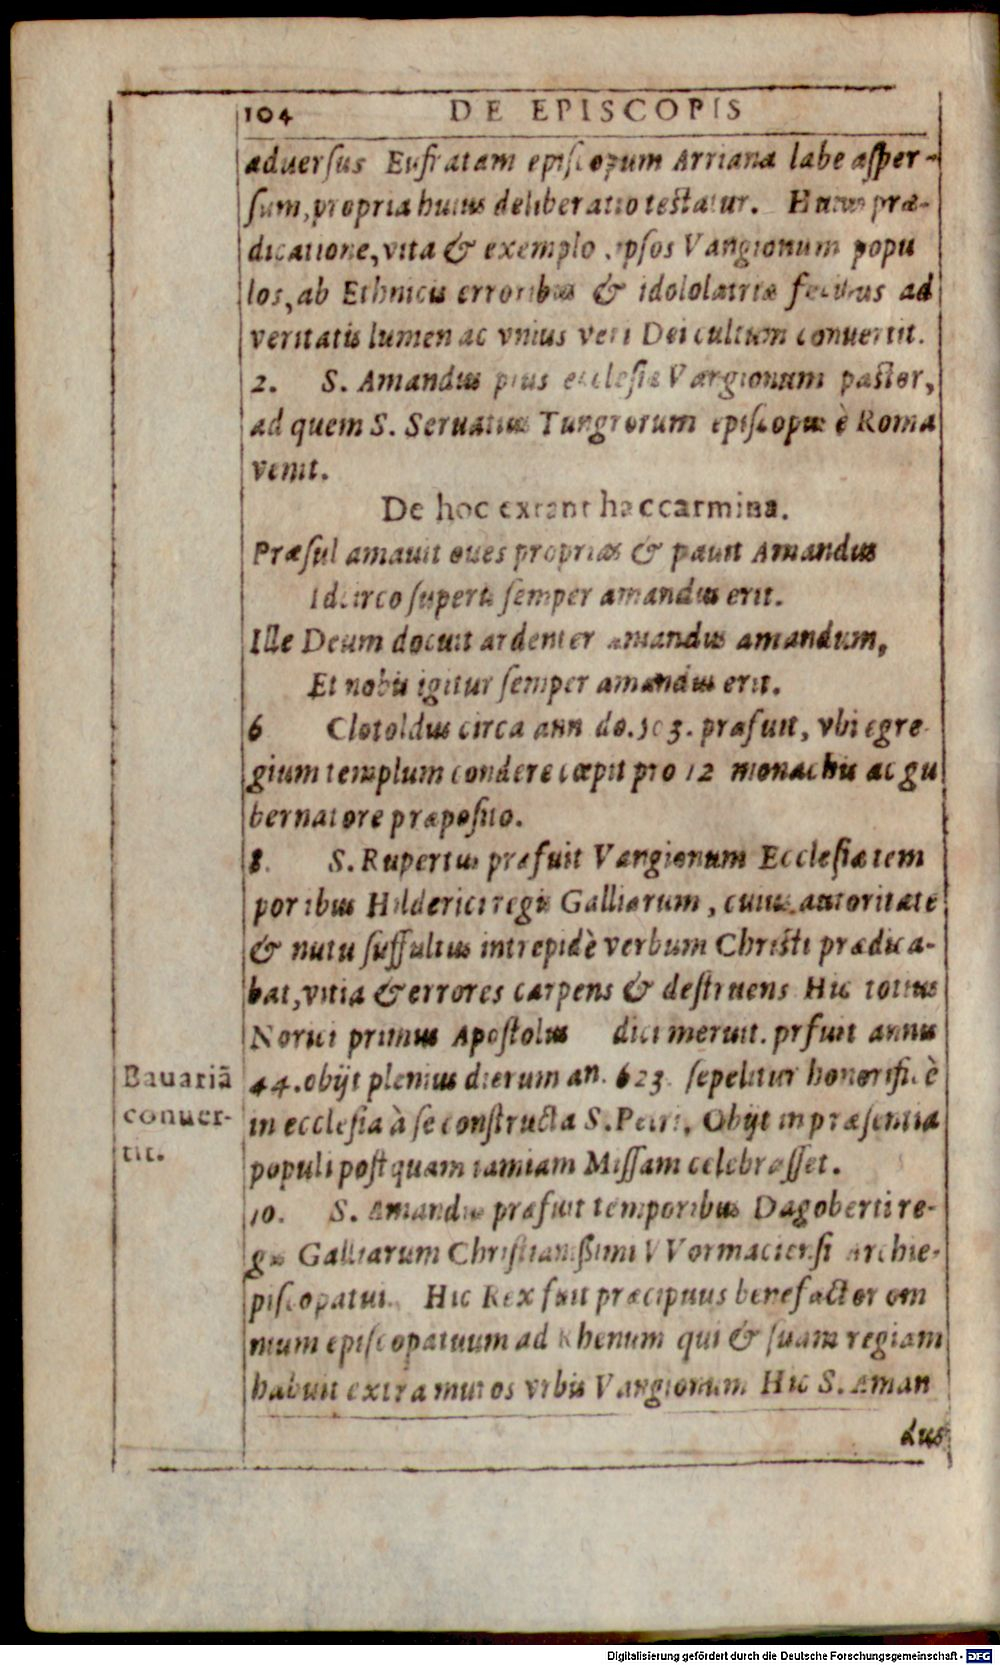 104 DE EPISCOPIS
aduersus Eufratam episcopum Arriana labe asper-
sum, propria huius deliberatio testatur. Huius præ-
dicatione, vita & exemplo ipsos Vangionum popu
los, ab Ethnicis erroribus & idololatriæ fecibus ad
veritatis lumen ac vnius veri Dei cultum conuertit.
2. S. Amandus pius ecclesiæ Vangionum pastor,
ad quem S. Seruatius Tungrorum episcopus è Roma
venit.
De hoc extant hæc carmina.
Præsul amauit oues proprias & pauit Amandus
Idcirco superis semper amandus erit.
Ille Deum docuit ardenter amandus amandum,
Et nobis igitur semper amandus erit.
6 Clotoldus circa ann do. 503. præfuit, vbi egre-
gium templum condere cœpit pro 12 monachis ac gu
bernatore præposito.
8. S. Rupertus præfuit Vangionum Ecclesiæ tem
poribus Hilderici regis Galliarum, cuius autoritate
& nutu suffultus intrepidè verbum Christi prædica-
bat, vitia & errores carpens & destruens Hic totius
Norici primus Apostolus dici meruit. prfuit annis
44. obijt plenus dierum an. 623. sepelitur honorificè
in ecclesia à se constructa S. Petri. Obijt in præsentia
populi postquam iam iam Missam celebrasset.
Bauariā
conuer-
tit.
10. S. Amandus præfuit temporibus Dagoberti re-
gis Galliarum Christianißimi VVormaciensi Archie-
piscopatui. Hic Rex fuit præcipuus benefactor om
nium episcopatuum ad Rhenum qui & suam regiam
habuit extra muros vrbis Vangionum Hic S. Aman
dus
Digitalisierung gefördert durch die Deutsche Forschungsgemeinschaft - DFG